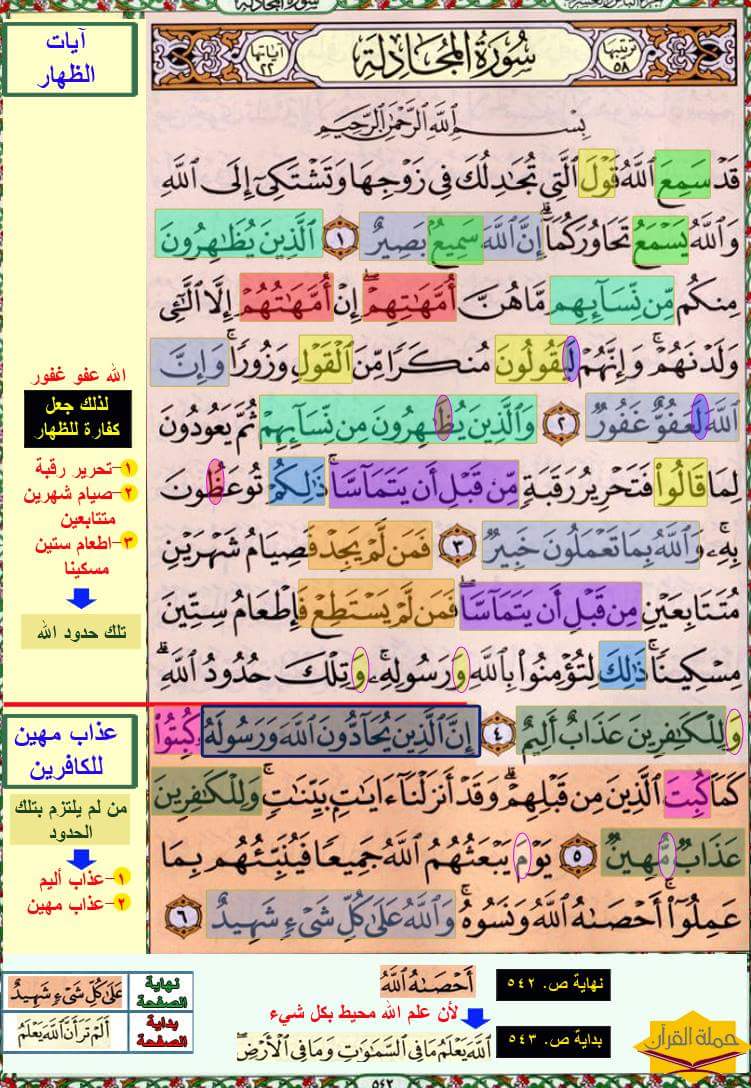 سورة المجادلة
الجزء الثامن والعشرون
سُورَةُ المُجَادلَةِ
ترتيبها ٥٨
آياتها ٢٢
بِسْمِ اللَّهِ الرَّحْمَٰنِ الرَّحِيمِ
قَدْ سَمِعَ اللَّهُ قَوْلَ الَّتِي تُجَادِلُكَ فِي زَوْجِهَا وَتَشْتَكِي إِلَى اللَّهِ
وَاللَّهُ يَسْمَعُ تَحَاوُرَكُمَا ۚ إِنَّ اللَّهَ سَمِيعٌ بَصِيرٌ ١ الَّذِينَ يُظَٰهِرُونَ
مِنكُم مِّن نِّسَآئِهِم مَّا هُنَّ أُمَّهَٰتِهِمْ ۖ إِنْ أُمَّهَٰتُهُمْ إِلَّا الَّٰٓـِٔي
وَلَدْنَهُمْ ۚ وَإِنَّهُمْ لَيَقُولُونَ مُنكَرًا مِّنَ الْقَوْلِ وَزُورًا ۚ وَإِنَّ
اللَّهَ لَعَفُوٌّ غَفُورٌ ٢ وَالَّذِينَ يُظَٰهِرُونَ مِن نِّسَآئِهِمْ ثُمَّ يَعُودُونَ
لِمَا قَالُوا۟ فَتَحْرِيرُ رَقَبَةٍ مِّن قَبْلِ أَن يَتَمَآسَّا ۚ ذَٰلِكُمْ تُوعَظُونَ
بِهِۦ ۚ وَاللَّهُ بِمَا تَعْمَلُونَ خَبِيرٌ ٣ فَمَن لَّمْ يَجِدْ فَصِيَامُ شَهْرَيْنِ
مُتَتَابِعَيْنِ مِن قَبْلِ أَن يَتَمَآسَّا ۖ فَمَن لَّمْ يَسْتَطِعْ فَإِطْعَامُ سِتِّينَ
مِسْكِينًا ۚ ذَٰلِكَ لِتُؤْمِنُوا۟ بِاللَّهِ وَرَسُولِهِۦ ۚ وَتِلْكَ حُدُودُ اللَّهِ ۗ
وَلِلْكَٰفِرِينَ عَذَابٌ أَلِيمٌ ٤ إِنَّ الَّذِينَ يُحَآدُّونَ اللَّهَ وَرَسُولَهُۥ كُبِتُوا۟
كَمَا كُبِتَ الَّذِينَ مِن قَبْلِهِمْ ۚ وَقَدْ أَنزَلْنَآ ءَايَٰتٍۭ بَيِّنَٰتٍ ۚ وَلِلْكَٰفِرِينَ
عَذَابٌ مُّهِينٌ ٥ يَوْمَ يَبْعَثُهُمُ اللَّهُ جَمِيعًا فَيُنَبِّئُهُم بِمَا
عَمِلُوٓا۟ ۚ أَحْصَىٰهُ اللَّهُ وَنَسُوهُ ۚ وَاللَّهُ عَلَىٰ كُلِّ شَىْءٍ شَهِيدٌ ٦
آيات
الظهار
الله عفو غفور
لذلك جعل
كفارة للظهار
١- تحرير رقبة
٢- صيام شهرين
متتابعين
٣- اطعام ستين
مسكينا
تلك حدود الله
عذاب مهين
للكافرين
من لم يلتزم بتلك
الحدود
١- عذاب أليم
٢- عذاب مهين
نهاية ص. ٥٤٢
أَحْصَىٰهُ اللَّهُ
لأن علم الله محيط بكل شيء
بداية ص. ٥٤٣
اللَّهَ يَعْلَمُ مَا فِى السَّمَٰوَٰتِ وَمَا فِى الْأَرْضِ
نهاية
الصفحة
عَلَىٰ كُلِّ شَىْءٍ شَهِيدٌ
بداية
الصفحة
أَلَمْ تَرَ أَنَّ اللَّهَ يَعْلَمُ
حملة القرآن
٥٤٢